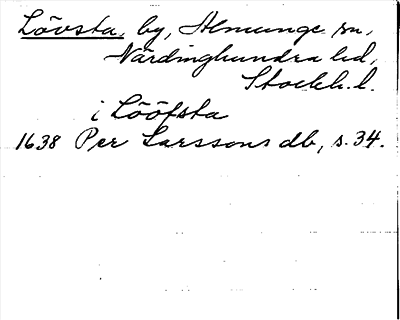 Lövsta, by, Almunge sn,
Närdinghundra hd,
Stockh. l.
i Lööfsta
1638 Per Larssons db, s. 34.